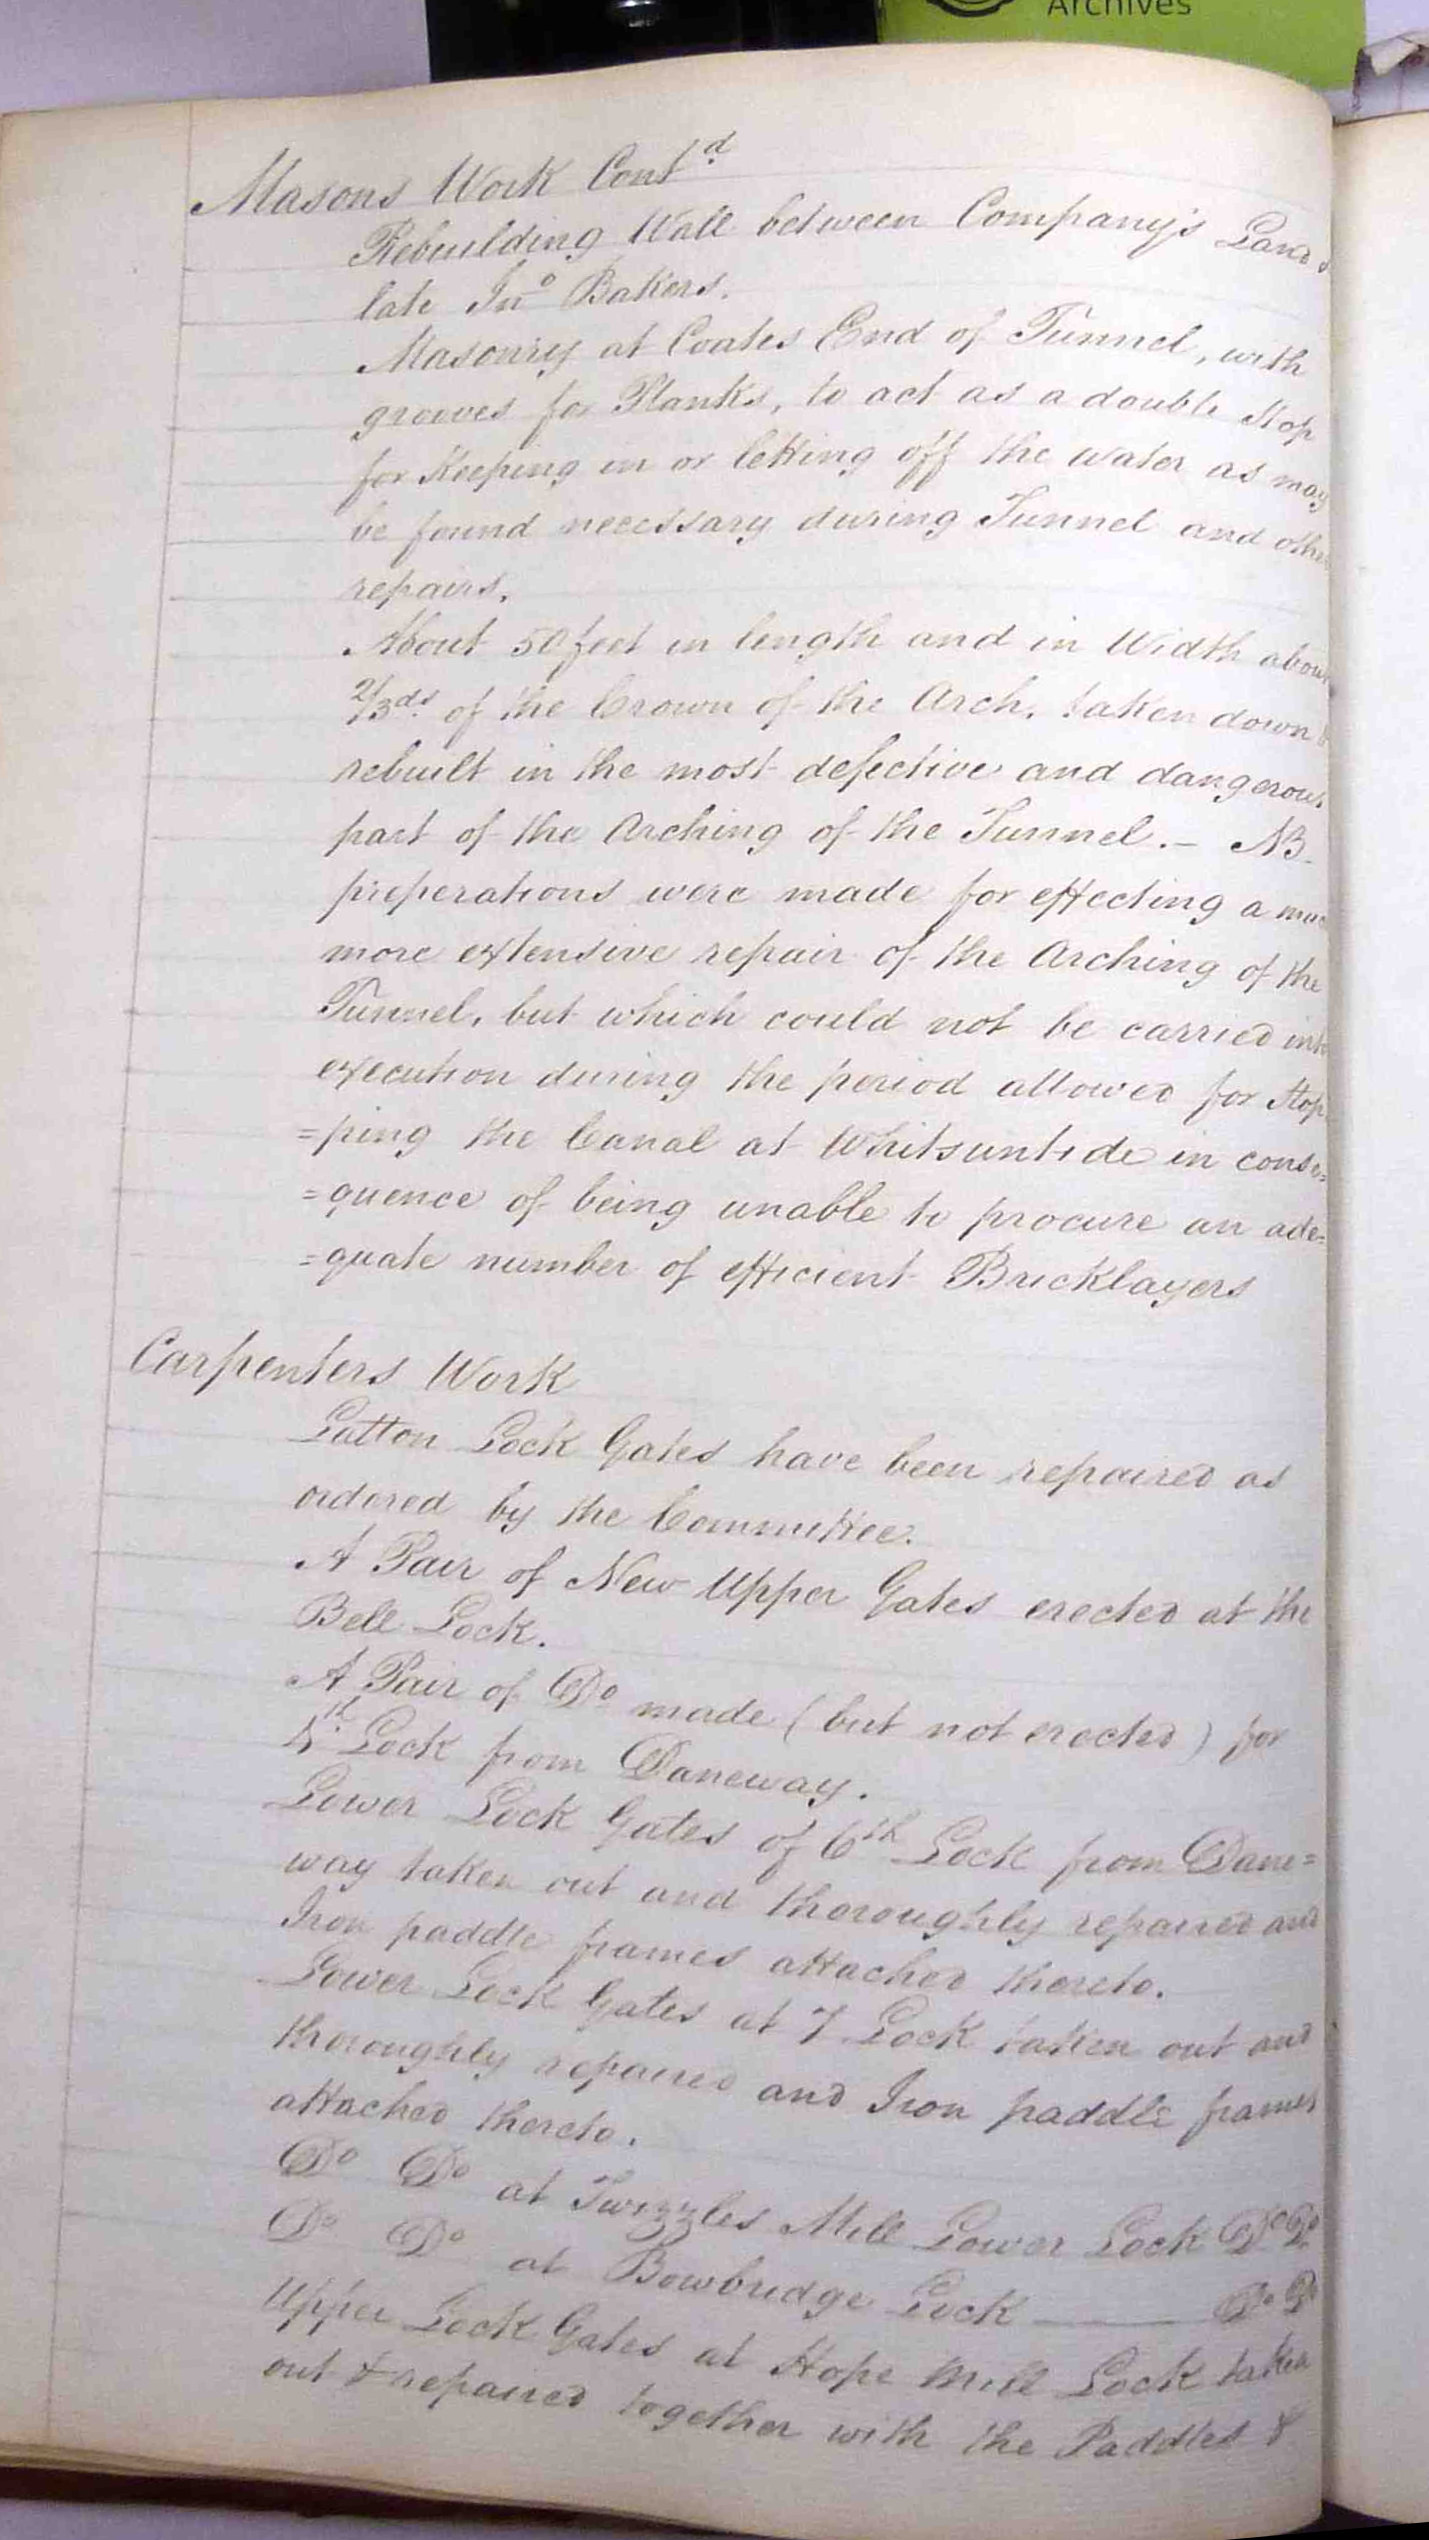 Archives
Masons Work Contd
Rebuilding Wall between Company's Land &
late Jno Bakers.
Masonry at Coates End of Tunnel, with
grooves for Planks, to act as a double Stop
for Keeping in or letting off the water as may
be found necessary during Tunnel and other
repairs.
About 50 feet in length and in Width about
2/3ds of the Crown of the Arch, taken down &
rebuilt in the most defective and dangerous
part of the Arching of the Tunnel. - NB
preperations were made for effecting a much
more extensive repair of the Arching of the
Tunnel, but which could not be carried into
execution during the period allowed for Stop
=ping the Canal at Whitsuntide in conse=
=quence of being unable to procure an ade=
=quate number of efficient Bricklayers
Carpenters Work
Latton Lock Gates have been repaired as
ordered by the Committee.
A Pair of New Upper Gates erected at the
Bell Lock.
A Pair of Do made (but not erected) for
4th Lock from Daneway.
Lower Lock Gates of 6th Lock from Dane=
way taken out and thoroughly repaired and
Iron paddle frames attached thereto.
Lower Lock Gates at 7 Lock taken out and
thoroughly repaired and Iron paddle frames
attached thereto.
Do Do at Twizzles Mill Lower Lock Do Do
Do Do at Bowbridge Lock —— Do Do
Upper Lock Gates at Hope Mill Lock taken
out & repaired together with the Paddles &